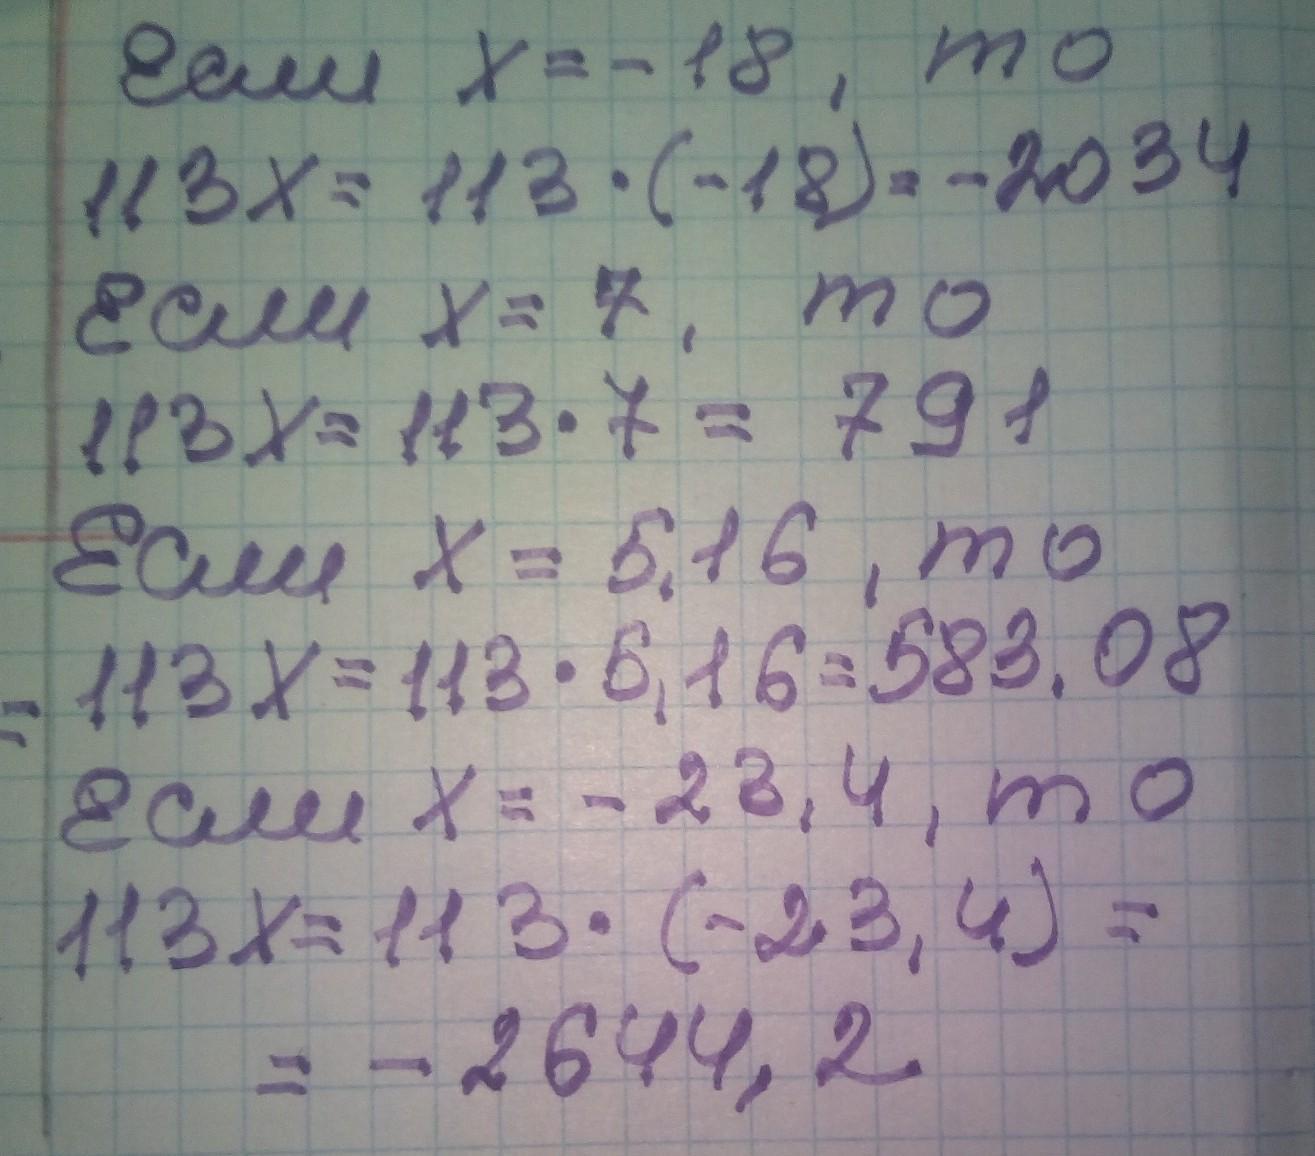 Если x = -18, то
113x = 113 · (-18) = -2034
Если x = 7, то
113x = 113 · 7 = 791
Если x = 5,16, то
= 113x = 113 · 5,16 = 583,08
Если x = -23,4, то
113x = 113 · (-23,4) =
= -2644,2